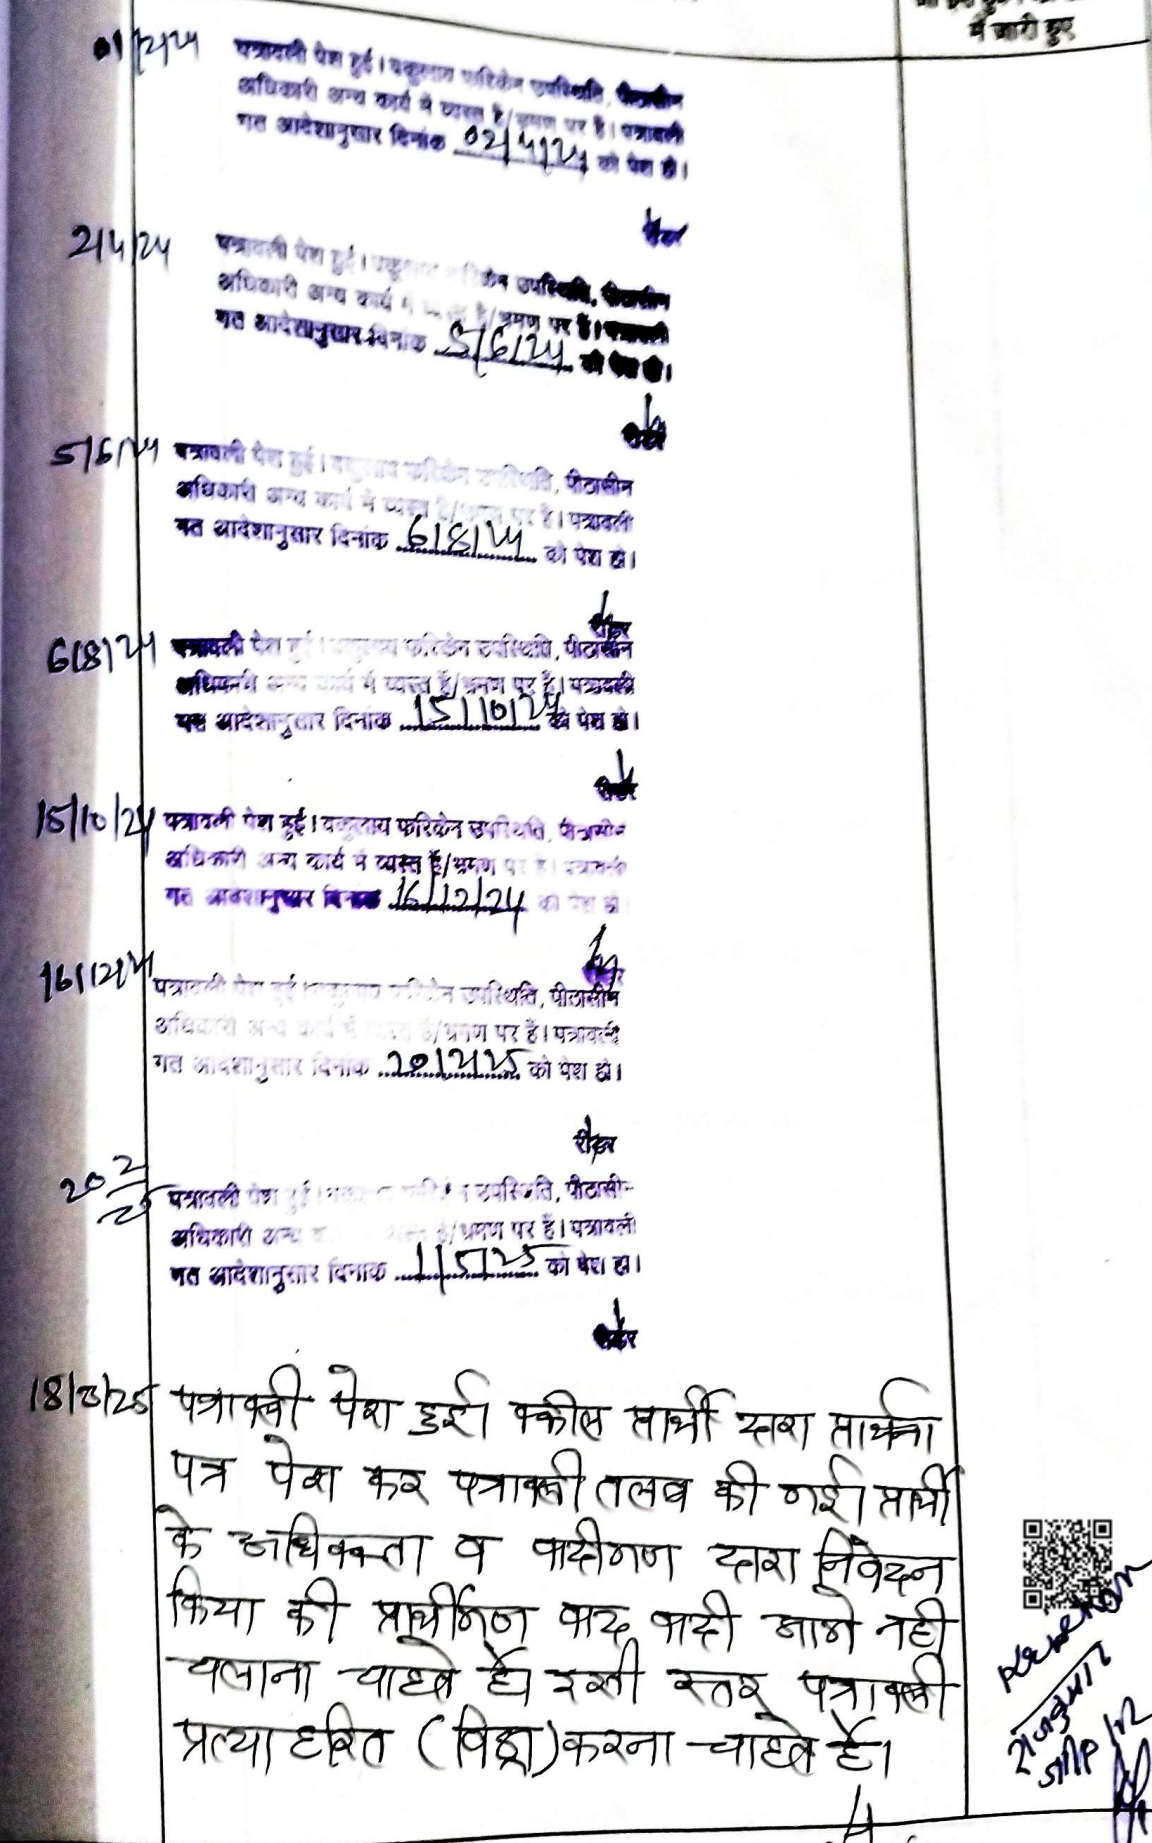 में जारी हुए
01/2/24
पत्रावली पेश हुई। वकुलाय फरिकेन उपस्थिति, पीठासीन
अधिकारी अन्य कार्य में व्यस्त है/भ्रमण पर है। पत्रावली
गत आदेशानुसार दिनांक 02/4/24 को पेश हो।
रीडर
2/4/24
पत्रावली पेश हुई। वकुलाय फरिकेन उपस्थिति, पीठासीन
अधिकारी अन्य कार्य में व्यस्त है/भ्रमण पर है। पत्रावली
गत आदेशानुसार दिनांक 5/6/24 को पेश हो।
रीडर
5/6/24
पत्रावली पेश हुई। वकुलाय फरिकेन उपस्थिति, पीठासीन
अधिकारी अन्य कार्य में व्यस्त है/भ्रमण पर है। पत्रावली
गत आदेशानुसार दिनांक 6/8/24 को पेश हो।
रीडर
6/8/24
पत्रावली पेश हुई। वकुलाय फरिकेन उपस्थिति, पीठासीन
अधिकारी अन्य कार्य में व्यस्त है/भ्रमण पर है। पत्रावली
गत आदेशानुसार दिनांक 15/10/24 को पेश हो।
रीडर
15/10/24
पत्रावली पेश हुई। वकुलाय फरिकेन उपस्थिति, पीठासीन
अधिकारी अन्य कार्य में व्यस्त है/भ्रमण पर है। पत्रावली
गत आदेशानुसार दिनांक 16/12/24 को पेश हो
16/12/24
पत्रावली पेश हुई। वकुलाय फरिकेन उपस्थिति, पीठासीन
अधिकारी अन्य कार्य में व्यस्त है/भ्रमण पर है। पत्रावली
गत आदेशानुसार दिनांक 20/2/25 को पेश हो।
रीडर
20/2/25
पत्रावली पेश हुई। वकुलाय फरिकेन उपस्थिति, पीठासीन
अधिकारी अन्य कार्य में व्यस्त है/भ्रमण पर है। पत्रावली
गत आदेशानुसार दिनांक 1/5/25 को पेश हो।
रीडर
18/3/25
पत्रावली पेश हुई। वकील प्रार्थी द्वारा प्रार्थना
पत्र पेश कर पत्रावली तलब की गई। प्रार्थी
के अधिवक्ता व वादीगण द्वारा निवेदन
किया की प्रार्थीगण वाद वादी आगे नही
चलाना चाहते है। इसी स्तर पत्रावली
प्रत्याहरित (विड्रा) करना चाहते है।